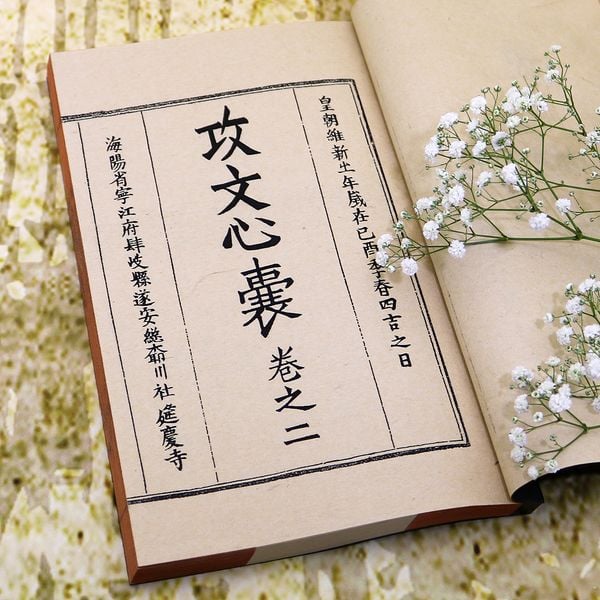 皇朝維新年歲在已酉季春四吉之日
攻文心囊 卷之二
海陽省寧江府肆岐縣遂安總川社 筵慶寺